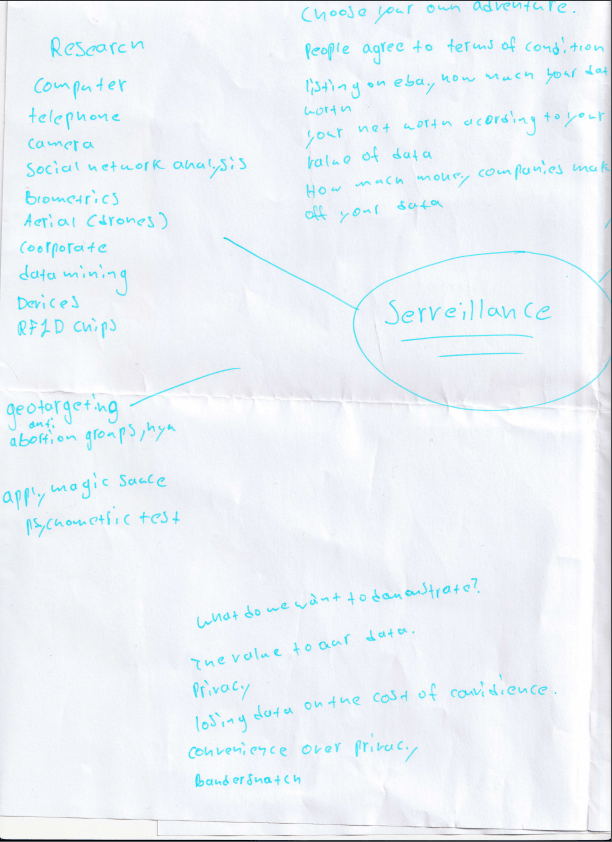 Choose your own adventure.
People agree to terms of condition
listing on ebay, how much your dat
worth
your net worth acording to your
value of data
How much money companies mak
off your data
Research
Computer
telephone
camera
Social network analysis
Biometrics
Aerial (drones)
Coorporate
data mining
Devices
RFID chips
Serveillance
geotargeting
anti
abortion groups,
apply magic sauce
psychometric test
What do we want to demonstrate?
The value to our data.
Privacy
losing data on the cost of convidience.
convenience over privacy
Bandersnatch